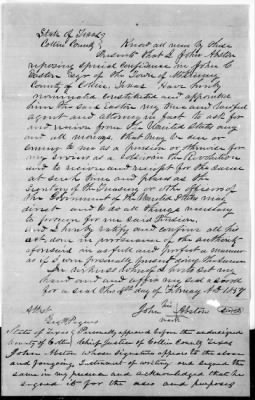 State of Texas
Collin County Know all men by these
Presents that I John Abston
reposing special confidence in John C
Easton Esqr of the Town of McKinney
County of Collin, Texas Have hereby
nominated constituted and appointed
him the said Easton my true and lawful
agent and attorney in fact to ask for
and receive from the United States any
and all moneys, that may be due or
coming to me as a pension or otherwise for
my services as a soldier in the Revolution
and to receive and receipt for the same
at such time and place as the
Secretary of the Treasury or other officers of
the Government of the United States may
direct and to do all things necessary
to for me said Pension,
And I hereby ratify and confirm all his
acts done in pursuance of the authority
aforesaid in as full and perfect a manner
as if I were personally present doing the same
In witness whereof I hereto set my
hand and and affix my seal a scroll
for a seal this day of February AD 1857
Attest John his Abston Seal
mark
State of Texas Personally appeared before the undersigned
County of Collin Chief Justice of Collin County Texas
John Abston whose signature appears to the above
and foregoing Instrument of writing and signed the
same in my presence and acknowledged that he
signed it for the uses and purposes